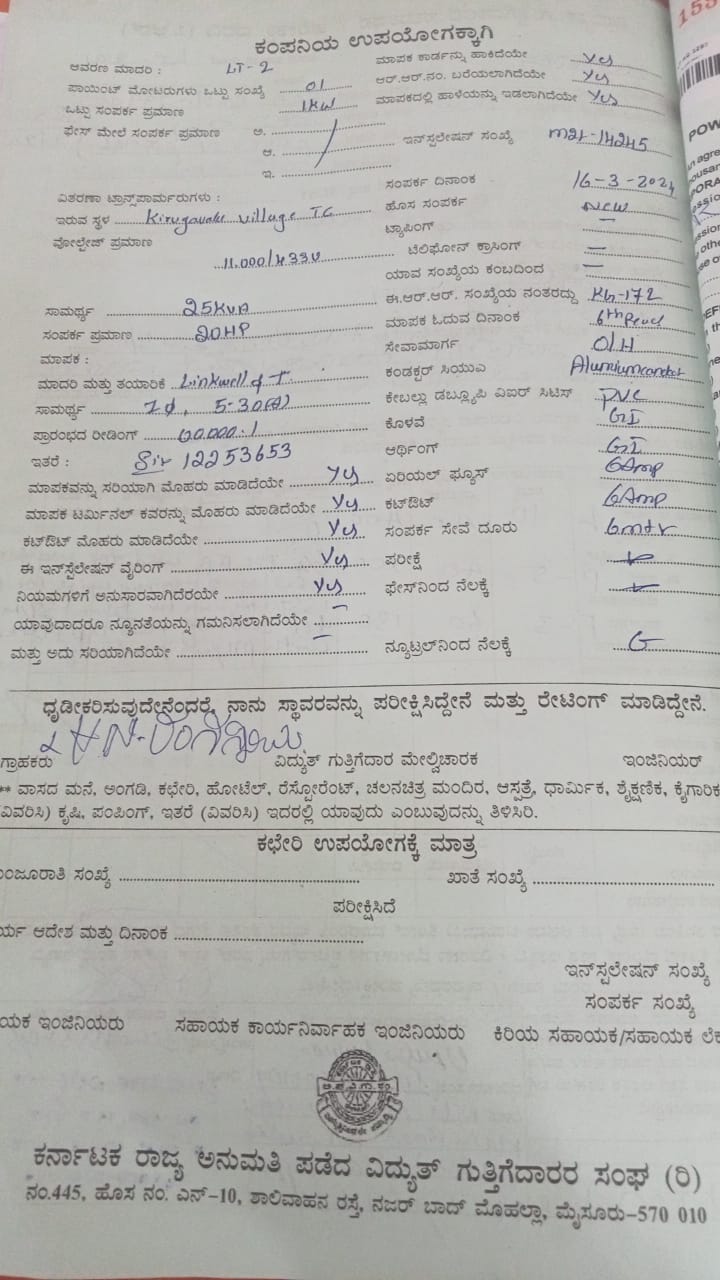 155
ಕಂಪನಿಯ ಉಪಯೋಗಕ್ಕಾಗಿ
ಆವರಣ ಮಾದರಿ : LT-2
ಮಾಪಕ ಕಾರ್ಡನ್ನು ಹಾಕಿದೆಯೇ Yes
ಪಾಯಿಂಟ್ ಮೋಟರುಗಳು ಒಟ್ಟು ಸಂಖ್ಯೆ 01
ಆರ್.ಆರ್.ನಂ. ಬರೆಯಲಾಗಿದೆಯೇ Yes
ಒಟ್ಟು ಸಂಪರ್ಕ ಪ್ರಮಾಣ 1KW
ಮಾಪಕದಲ್ಲಿ ಹಾಳೆಯನ್ನು ಇಡಲಾಗಿದೆಯೇ Yes
ಫೇಸ್ ಮೇಲೆ ಸಂಪರ್ಕ ಪ್ರಮಾಣ ಅ.
ಆ.
ಇ.
ಇನ್‌ಸ್ಪಲೇಷನ್ ಸಂಖ್ಯೆ m21-14245
ಸಂಪರ್ಕ ದಿನಾಂಕ 16-3-2024
ವಿತರಣಾ ಟ್ರಾನ್ಸ್‌ಫಾರ್ಮರುಗಳು :
ಹೊಸ ಸಂಪರ್ಕ New
ಇರುವ ಸ್ಥಳ Village TC
ಟ್ಯಾಪಿಂಗ್ —
ವೋಲ್ಟೇಜ್ ಪ್ರಮಾಣ 11.000/433V
ಟೆಲಿಫೋನ್ ಕ್ರಾಸಿಂಗ್ —
ಯಾವ ಸಂಖ್ಯೆಯ ಕಂಬದಿಂದ —
ಸಾಮರ್ಥ್ಯ 25KVA
ಈ.ಆರ್.ಆರ್. ಸಂಖ್ಯೆಯ ನಂತರದ್ದು KG-172
ಸಂಪರ್ಕ ಪ್ರಮಾಣ 20HP
ಮಾಪಕ ಓದುವ ದಿನಾಂಕ
ಮಾಪಕ :
ಸೇವಾಮಾರ್ಗ O/H
ಮಾದರಿ ಮತ್ತು ತಯಾರಿಕೆ Linkwell
ಕಂಡಕ್ಟರ್ ಸಿಯುಎ
ಸಾಮರ್ಥ್ಯ 1Φ, 5-30(A)
ಕೇಬಲ್ಲು ಡಬ್ಲ್ಯೂಪಿ ವಿಐರ್ ಸಿಟಿಸ್ PVC
ಪ್ರಾರಂಭದ ರೀಡಿಂಗ್ 00.000.1
ಕೊಳವೆ GI
ಇತರೆ : 12253653
ಆರ್ಥಿಂಗ್ GI
ಮಾಪಕವನ್ನು ಸರಿಯಾಗಿ ಮೊಹರು ಮಾಡಿದೆಯೇ Yes
ಏರಿಯಲ್ ಫ್ಯೂಸ್ 6Amp
ಮಾಪಕ ಟರ್ಮಿನಲ್ ಕವರನ್ನು ಮೊಹರು ಮಾಡಿದೆಯೇ Yes
ಕಟ್‌ಔಟ್ 6Amp
ಕಟ್‌ಔಟ್ ಮೊಹರು ಮಾಡಿದೆಯೇ Yes
ಸಂಪರ್ಕ ಸೇವೆ ದೂರು 6mtr
ಈ ಇನ್‌ಸ್ಪೆಲೇಷನ್ ವೈರಿಂಗ್ Yes
ಪರೀಕ್ಷೆ
ನಿಯಮಗಳಿಗೆ ಅನುಸಾರವಾಗಿದೆರಯೇ Yes
ಫೇಸ್‌ನಿಂದ ನೆಲಕ್ಕೆ
ಯಾವುದಾದರೂ ನ್ಯೂನತೆಯನ್ನು ಗಮನಿಸಲಾಗಿದೆಯೇ —
ಮತ್ತು ಅದು ಸರಿಯಾಗಿದೆಯೇ —
ನ್ಯೂಟ್ರಲ್‌ನಿಂದ ನೆಲಕ್ಕೆ
ಧೃಡೀಕರಿಸುವುದೇನೆಂದರೆ, ನಾನು ಸ್ಥಾವರವನ್ನು ಪರೀಕ್ಷಿಸಿದ್ದೇನೆ ಮತ್ತು ರೇಟಿಂಗ್ ಮಾಡಿದ್ದೇನೆ.
ಗ್ರಾಹಕರು ವಿದ್ಯುತ್ ಗುತ್ತಿಗೆದಾರ ಮೇಲ್ವಿಚಾರಕ ಇಂಜಿನಿಯರ್
** ವಾಸದ ಮನೆ, ಅಂಗಡಿ, ಕಛೇರಿ, ಹೋಟೆಲ್, ರೆಸ್ಟೋರೆಂಟ್, ಚಲನಚಿತ್ರ ಮಂದಿರ, ಆಸ್ಪತ್ರೆ, ಧಾರ್ಮಿಕ, ಶೈಕ್ಷಣಿಕ, ಕೈಗಾರಿಕ
(ವಿವರಿಸಿ) ಕೃಷಿ, ಪಂಪಿಂಗ್, ಇತರೆ (ವಿವರಿಸಿ) ಇದರಲ್ಲಿ ಯಾವುದು ಎಂಬುವುದನ್ನು ತಿಳಿಸಿರಿ.
ಕಛೇರಿ ಉಪಯೋಗಕ್ಕೆ ಮಾತ್ರ
ಂಜೂರಾತಿ ಸಂಖ್ಯೆ ಖಾತೆ ಸಂಖ್ಯೆ
ಪರೀಕ್ಷಿಸಿದೆ
ರ್ಯ ಆದೇಶ ಮತ್ತು ದಿನಾಂಕ
ಇನ್‌ಸ್ಪಲೇಷನ್ ಸಂಖ್ಯೆ
ಸಂಪರ್ಕ ಸಂಖ್ಯೆ
ಯಕ ಇಂಜಿನಿಯರು ಸಹಾಯಕ ಕಾರ್ಯನಿರ್ವಾಹಕ ಇಂಜಿನಿಯರು ಕಿರಿಯ ಸಹಾಯಕ/ಸಹಾಯಕ ಲೆಕ
ಕರ್ನಾಟಕ ರಾಜ್ಯ ಅನುಮತಿ ಪಡೆದ ವಿದ್ಯುತ್ ಗುತ್ತಿಗೆದಾರರ ಸಂಘ (ರಿ)
ನಂ.445, ಹೊಸ ನಂ. ಎನ್-10, ಶಾಲಿವಾಹನ ರಸ್ತೆ, ನಜರ್ ಬಾದ್ ಮೊಹಲ್ಲಾ, ಮೈಸೂರು-570 010
POW